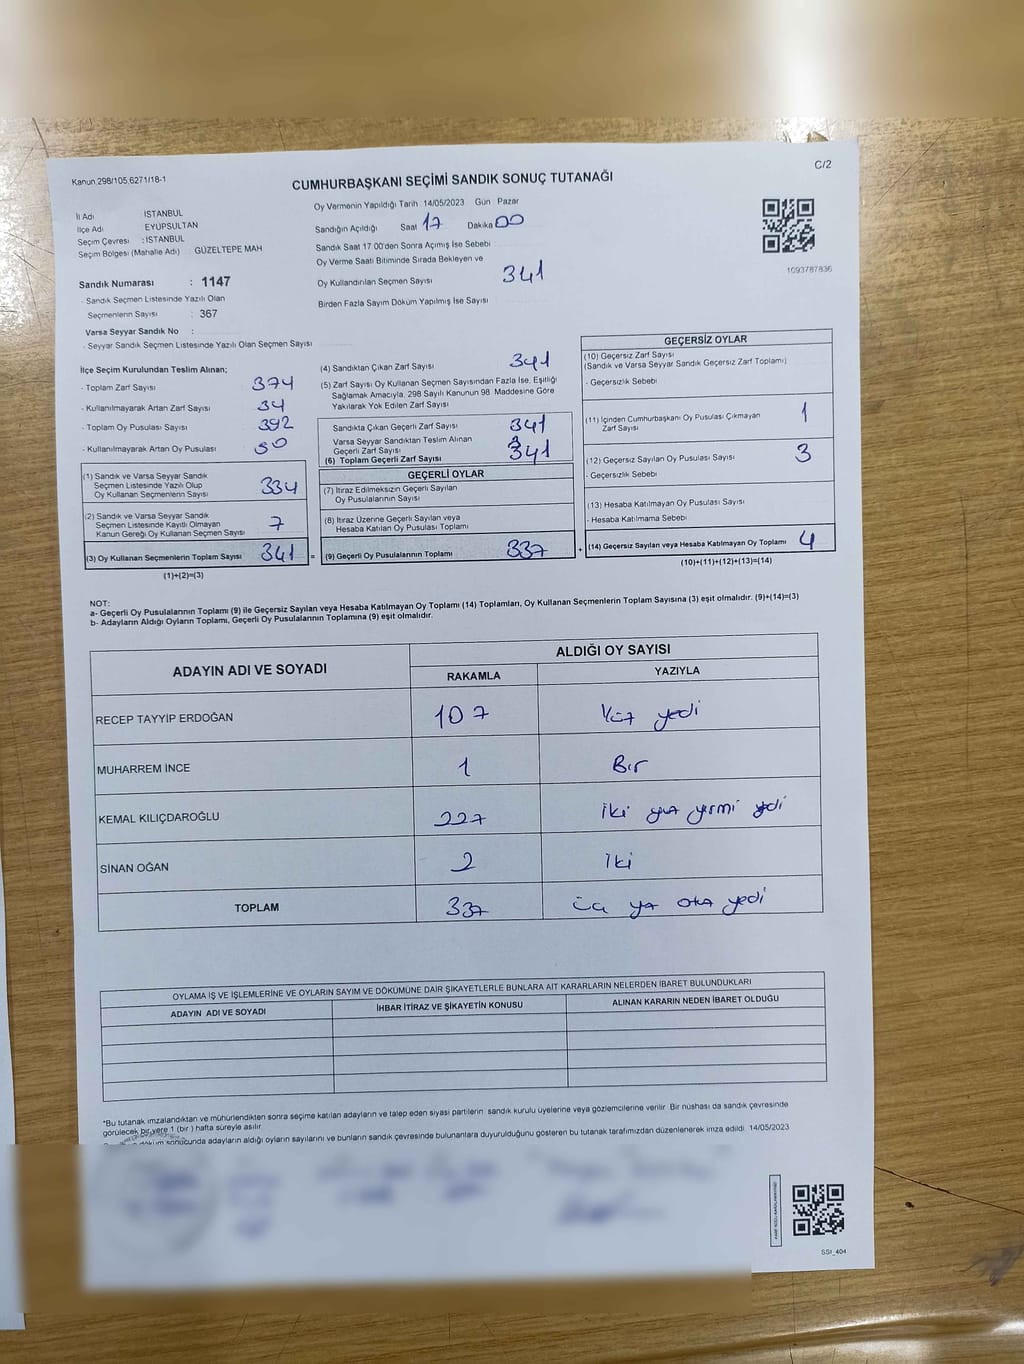 Kanun,298/105,6271/18-1
C/2
CUMHURBAŞKANI SEÇİMİ SANDIK SONUÇ TUTANAĞI
İl Adı İSTANBUL
İlçe Adı EYÜPSULTAN
Seçim Çevresi : İSTANBUL
Seçim Bölgesi (Mahalle Adı) GÜZELTEPE MAH
Oy Vermenin Yapıldığı Tarih 14/05/2023 Gün Pazar
Sandığın Açıldığı Saat 17 Dakika 00
Sandık Saat 17 00'den Sonra Açımış İse Sebebi
Oy Verme Saati Bitiminde Sırada Bekleyen ve
Oy Kullandırılan Seçmen Sayısı 341
Birden Fazla Sayım Döküm Yapılmış İse Sayısı
1093787836
Sandık Numarası : 1147
- Sandık Seçmen Listesinde Yazılı Olan
Seçmenlerin Sayısı : 367
Varsa Seyyar Sandık No :
- Seyyar Sandık Seçmen Listesinde Yazılı Olan Seçmen Sayısı
İlçe Seçim Kurulundan Teslim Alınan;
- Toplam Zarf Sayısı 374
- Kullanılmayarak Artan Zarf Sayısı 34
- Toplam Oy Pusulası Sayısı 392
- Kullanılmayarak Artan Oy Pusulası 50
(1) Sandık ve Varsa Seyyar Sandık
Seçmen Listesinde Yazılı Olup
Oy Kullanan Seçmenlerin Sayısı 334
(2) Sandık ve Varsa Seyyar Sandık
Seçmen Listesinde Kayıtlı Olmayan
Kanun Gereği Oy Kullanan Seçmen Sayısı 7
(3) Oy Kullanan Seçmenlerin Toplam Sayısı 341
(1)+(2)=(3)
(4) Sandıktan Çıkan Zarf Sayısı 341
(5) Zarf Sayısı Oy Kullanan Seçmen Sayısından Fazla İse, Eşitliği
Sağlamak Amacıyla, 298 Sayılı Kanunun 98. Maddesine Göre
Yakılarak Yok Edilen Zarf Sayısı
Sandıkta Çıkan Geçerli Zarf Sayısı 341
Varsa Seyyar Sandıktan Teslim Alınan
Geçerli Zarf Sayısı
(6) Toplam Geçerli Zarf Sayısı 341
GEÇERLİ OYLAR
(7) İtiraz Edilmeksizin Geçerli Sayılan
Oy Pusulalarının Sayısı
(8) İtiraz Üzerine Geçerli Sayılan veya
Hesaba Katılan Oy Pusulası Toplamı
= (9) Geçerli Oy Pusulalarının Toplamı 337
GEÇERSİZ OYLAR
(10) Geçersiz Zarf Sayısı
(Sandık ve Varsa Seyyar Sandık Geçersiz Zarf Toplamı)
- Geçersizlik Sebebi
(11) İçinden Cumhurbaşkanı Oy Pusulası Çıkmayan
Zarf Sayısı 1
(12) Geçersiz Sayılan Oy Pusulası Sayısı 3
- Geçersizlik Sebebi
(13) Hesaba Katılmayan Oy Pusulası Sayısı
- Hesaba Katılmama Sebebi
+ (14) Geçersiz Sayılan veya Hesaba Katılmayan Oy Toplamı 4
(10)+(11)+(12)+(13)=(14)
NOT:
a- Geçerli Oy Pusulalarının Toplamı (9) ile Geçersiz Sayılan veya Hesaba Katılmayan Oy Toplamı (14) Toplamları, Oy Kullanan Seçmenlerin Toplam Sayısına (3) eşit olmalıdır. (9)+(14)=(3)
b- Adayların Aldığı Oyların Toplamı, Geçerli Oy Pusulalarının Toplamına (9) eşit olmalıdır.
ADAYIN ADI VE SOYADI ALDIĞI OY SAYISI
RAKAMLA YAZIYLA
RECEP TAYYİP ERDOĞAN 107 Yüz yedi
MUHARREM İNCE 1 Bir
KEMAL KILIÇDAROĞLU 227 iki yüz yirmi yedi
SİNAN OĞAN 2 iki
TOPLAM 337 üç yz otuz yedi
OYLAMA İŞ VE İŞLEMLERİNE VE OYLARIN SAYIM VE DÖKÜMÜNE DAİR ŞİKAYETLERLE BUNLARA AİT KARARLARIN NELERDEN İBARET BULUNDUKLARI
ADAYIN ADI VE SOYADI İHBAR İTİRAZ VE ŞİKAYETİN KONUSU ALINAN KARARIN NEDEN İBARET OLDUĞU
*Bu tutanak imzalandıktan ve mühürlendikten sonra seçime katılan adayların ve talep eden siyasi partilerin sandık kurulu üyelerine veya gözlemcilerine verilir. Bir nüshası da sandık çevresinde
görülecek bir yere 1 (bir ) hafta süreyle asılır.
döküm sonucunda adayların aldığı oyların sayılarını ve bunların sandık çevresinde bulunanlara duyurulduğunu gösteren bu tutanak tarafımızdan düzenlenerek imza edildi. 14/05/2023
SSI_404